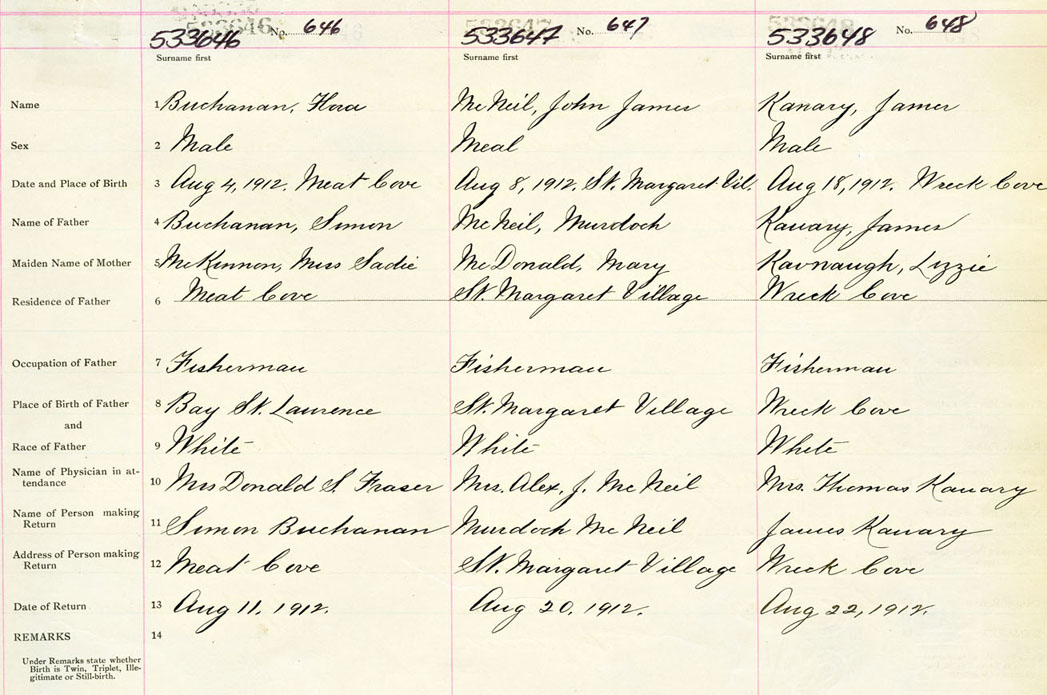 533646 No. 646 533647 No. 647 533648 No. 648
Surname first Surname first Surname first
Name 1 Buchanan, Flora McNeil, John James Kanary, James
Sex 2 Male Meal Male
Date and Place of Birth 3 Aug 4, 1912. Meat Cove Aug 8, 1912, St. Margaret Vil. Aug 18, 1912. Wreck Cove
Name of Father 4 Buchanan, Simon McNeil, Murdoch Kanary, James
Maiden Name of Mother 5 McKinnon, Miss Sadie McDonald, Mary Kavnaugh, Lizzie
Residence of Father 6 Meat Cove St. Margaret Village Wreck Cove
Occupation of Father 7 Fisherman Fisherman Fisherman
Place of Birth of Father 8 Bay St. Laurence St. Margaret Village Wreck Cove
and
Race of Father 9 White White White
Name of Physician in at-
tendance 10 Mrs Donald S. Fraser Mrs. Alex. J. McNeil Mrs. Thomas Kanary
Name of Person making
Return 11 Simon Buchanan Murdoch McNeil James Kanary
Address of Person making
Return 12 Meat Cove St. Margaret Village Wreck Cove
Date of Return 13 Aug 11, 1912. Aug 20, 1912. Aug 22, 1912.
REMARKS 14
Under Remarks state whether
Birth is Twin, Triplet, Ille-
gitimate or Still-birth.